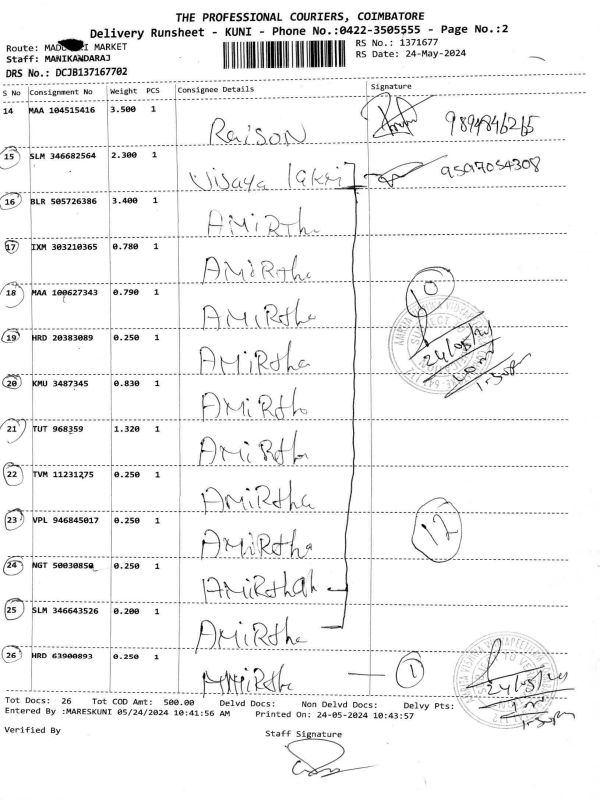 THE PROFESSIONAL COURIERS, COIMBATORE
Delivery Runsheet - KUNI - Phone No.:0422-3505555 - Page No.:2
Route: MARKET
RS No.: 1371677
Staff: MANIKANDARAJ
RS Date: 24-May-2024
DRS No.: DCJB137167702
S No Consignment No Weight PCS Consignee Details Signature
14 MAA 104515416 3.500 1
Raison 9894846265
15 SLM 346682564 2.300 1
Vijaya lakmi 9597054308
16 BLR 505726386 3.400 1
AMiRtha
17 IXM 303210365 0.780 1
AMiRtha
18 MAA 100627343 0.790 1
AMiRtha
19 HRD 20383089 0.250 1
AMiRtha
24/05/24
1.50pm
20 KMU 3487345 0.830 1
AMiRtha
21 TUT 968359 1.320 1
AMiRtha
22 TVM 11231275 0.250 1
AMiRtha
23 VPL 946845017 0.250 1
AMiRtha 12
24 NGT 50030850 0.250 1
AMiRthah
25 SLM 346643526 0.200 1
AMiRtha
26 HRD 63900893 0.250 1
AMiRtha 1
24/05/24
1.50pm
Tot Docs: 26 Tot COD Amt: 500.00 Delvd Docs: Non Delvd Docs: Delvy Pts:
Entered By :MARESKUNI 05/24/2024 10:41:56 AM Printed On: 24-05-2024 10:43:57
Verified By Staff Signature